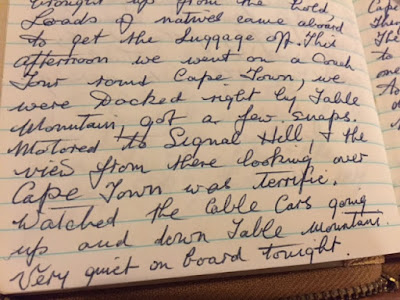 brought up from the hold, Cape
Loads of natives came aboard The
to get the luggage off. This The
afternoon we went on a Coach to
Tour round Cape Town, we one
were Docked right by Table to
Mountain, got a few snaps.
Motored to Signal Hill, & the
view from there looking over
Cape Town was terrific.
Watched the Cable Cars going
up and down Table Mountain.
Very quiet on board tonight.